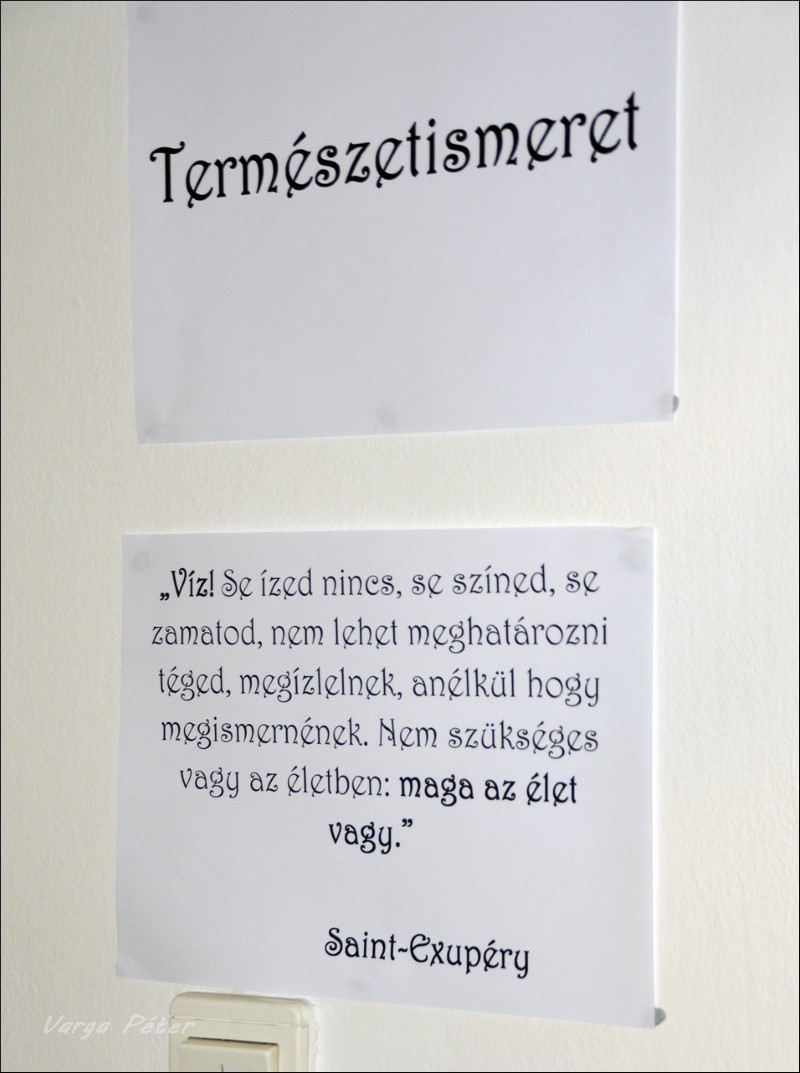 Természetismeret
„Víz! Se ízed nincs, se színed, se
zamatod, nem lehet meghatározni
téged, megízlelnek, anélkül hogy
megismernének. Nem szükséges
vagy az életben: maga az élet
vagy.”
Saint-Exupéry
Varga Péter